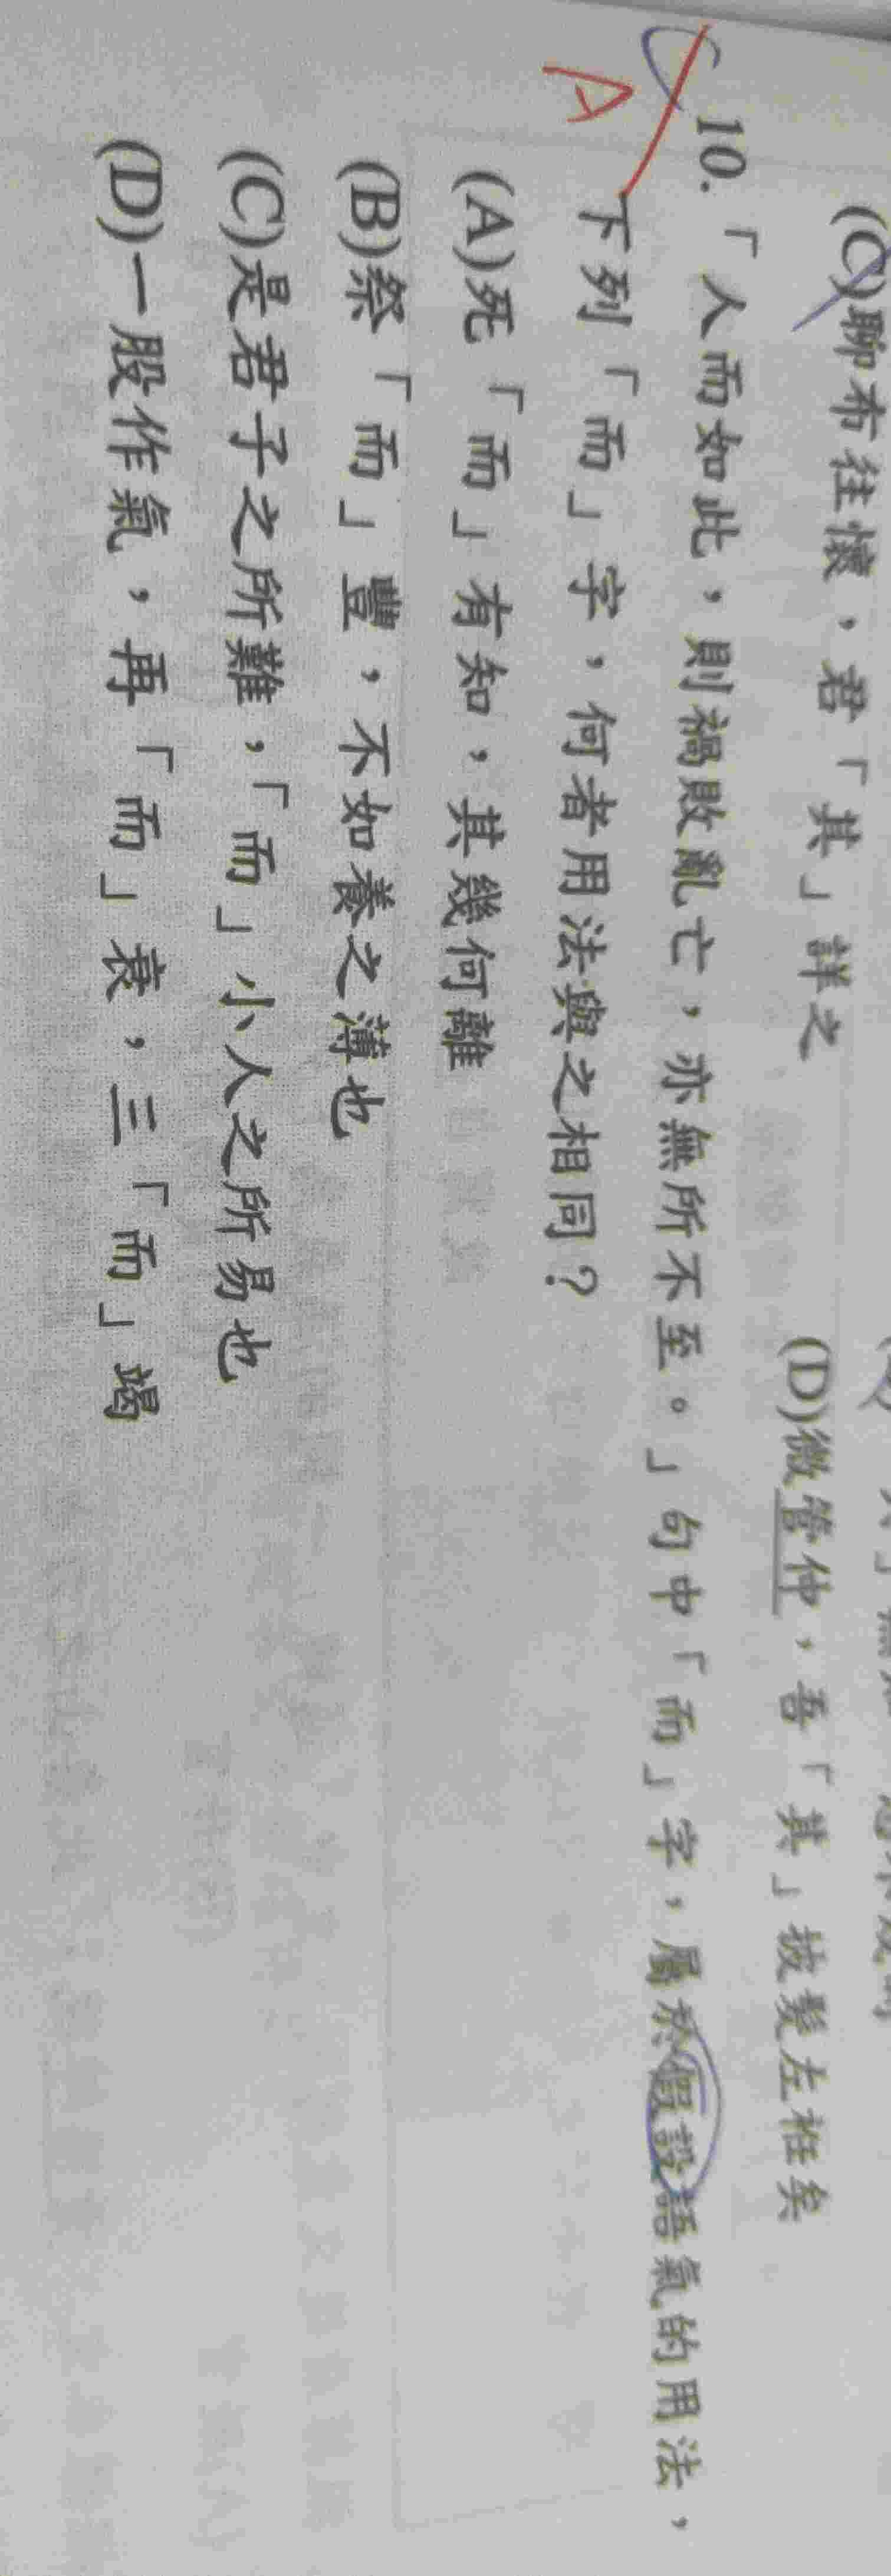 (C)聊布往懷，君「其」詳之
(D)微管仲，吾「其」披髮左衽矣
C
A
10.「人而如此，則禍敗亂亡，亦無所不至。」句中「而」字，屬於假設語氣的用法，
下列「而」字，何者用法與之相同？
(A)死「而」有知，其幾何離
(B)祭「而」豐，不如養之薄也
(C)是君子之所難，「而」小人之所易也
(D)一股作氣，再「而」衰，三「而」竭